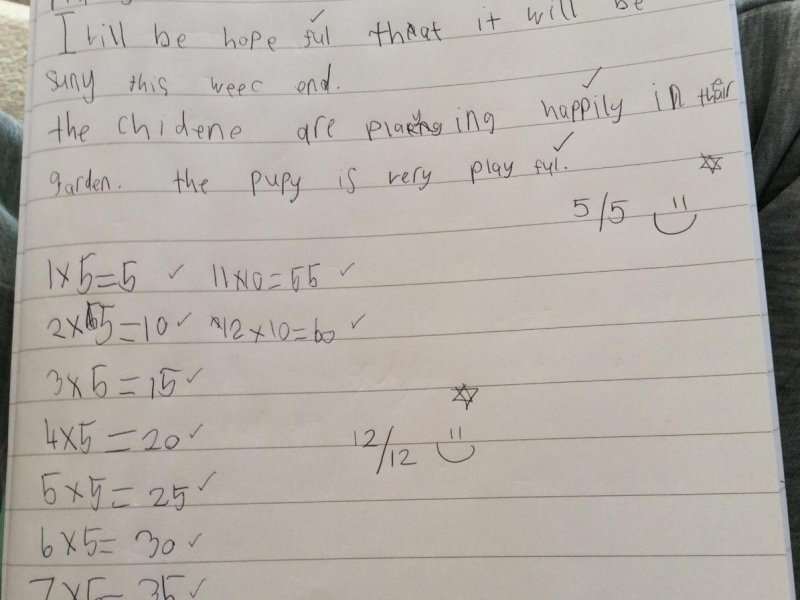 I will be hope ful that it will be
suny this weec end.
the chidene are playing happily in their
garden. the pupy is very play ful.
5/5
1×5=5 ✓ 11×10=55 ✓
2×5=10 ✓ 12×10=60 ✓
3×5=15 ✓
4×5=20 ✓ 12/12
5×5=25 ✓
6×5=30 ✓
7×5=35 ✓